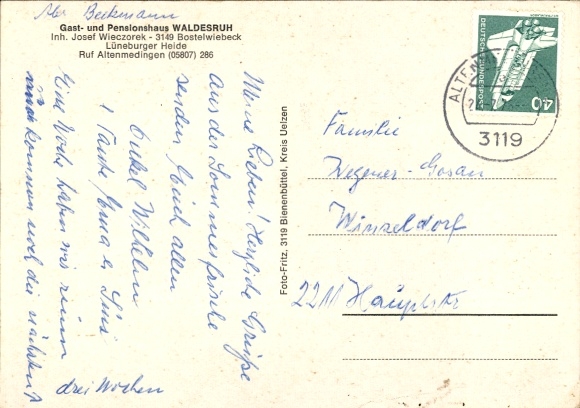 Abs. Beckmann
Gast- und Pensionshaus WALDESRUH
Inh. Josef Wieczorek - 3149 Bostelwiebeck
Lüneburger Heide
Ruf Altenmedingen (05807) 286
Meine Lieben! Herzliche Grüße
aus der Sommerfrische
senden Euch allen
Onkel Wilhelm
+ Tante Erna u. Susi
Eine Woche haben wir rum
kommen noch die nächsten
drei Wochen
Foto-Fritz, 3119 Bienenbüttel, Kreis Uelzen
DEUTSCHE BUNDESPOST
40
ALTENM
3119
Familie
Wegener-Gosau
Winzeldorf
2211 Hauptstr